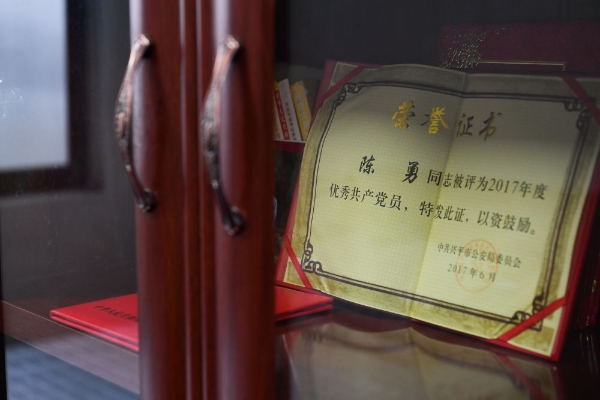 荣誉证书
陈 勇 同志被评为2017年度
优秀共产党员，特发此证，以资鼓励。
中共兴平市公安局委员会
2017年6月